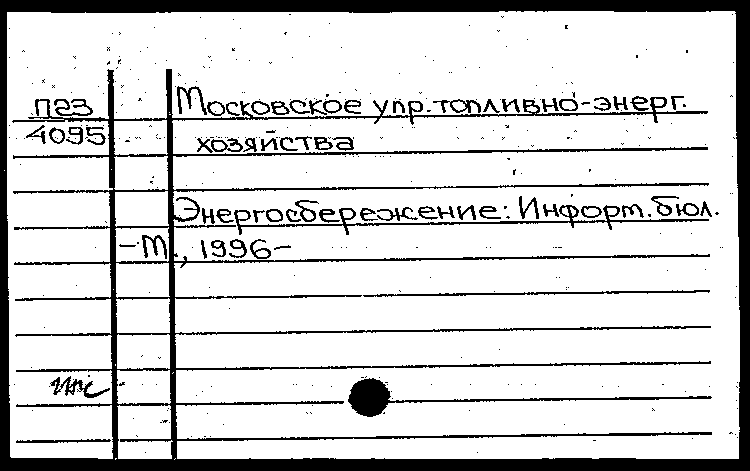 П23 Московское упр. топливно-энерг.
4095 хозяйства
Энергосбережение: Информ. бюл.
– М., 1996–